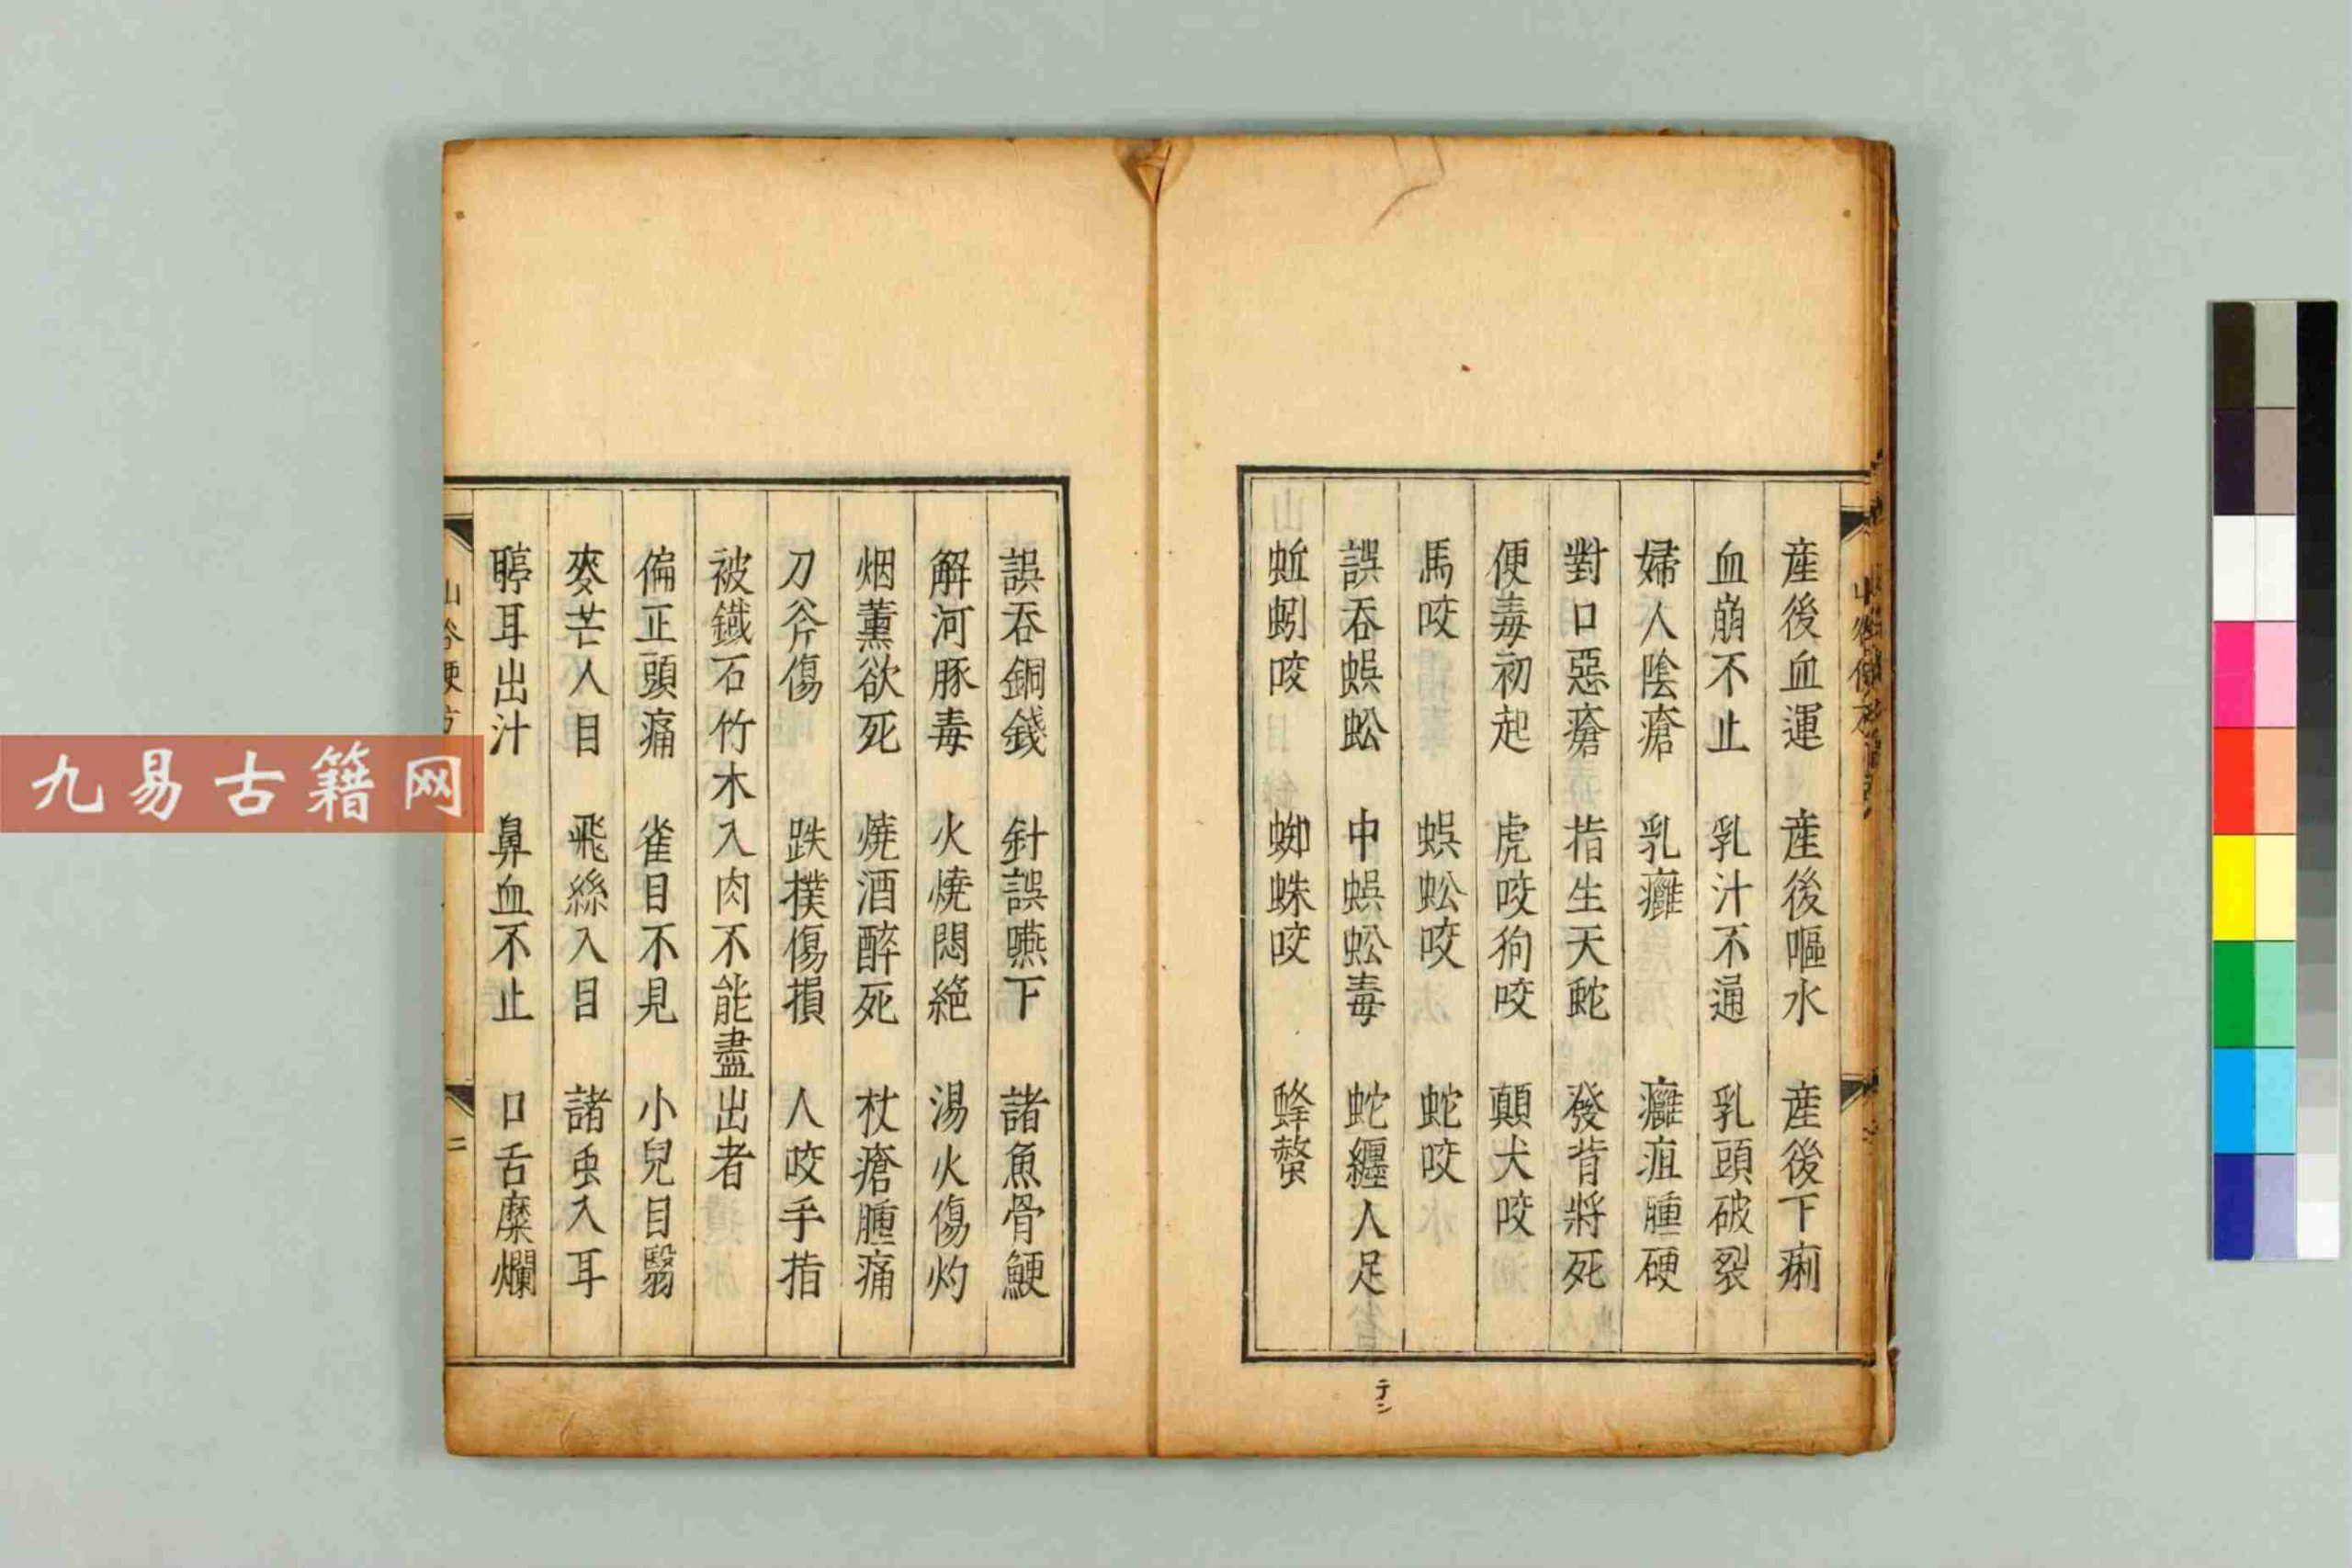 産後血運 産後嘔水 産後下痢
血崩不止 乳汁不通 乳頭破裂
婦人陰瘡 乳癰 癰疽腫硬
對口惡瘡 指生天蛇 發背將死
便毒初起 虎咬狗咬 顛犬咬
馬咬 蜈蚣咬 蛇咬
誤吞蜈蚣 中蜈蚣毒 蛇纏人足
蚯蚓咬 蜘蛛咬 蜂螫
テシ
誤吞銅錢 針誤嚥下 諸魚骨鯁
解河豚毒 火燒悶絕 湯火傷灼
烟薰欲死 燒酒醉死 杖瘡腫痛
刀斧傷 跌撲傷損 人咬手指
被鐵石竹木入肉不能盡出者
偏正頭痛 雀目不見 小兒目翳
麥芒入目 飛絲入目 諸虫入耳
聤耳出汁 鼻血不止 口舌糜爛
二
九易古籍网